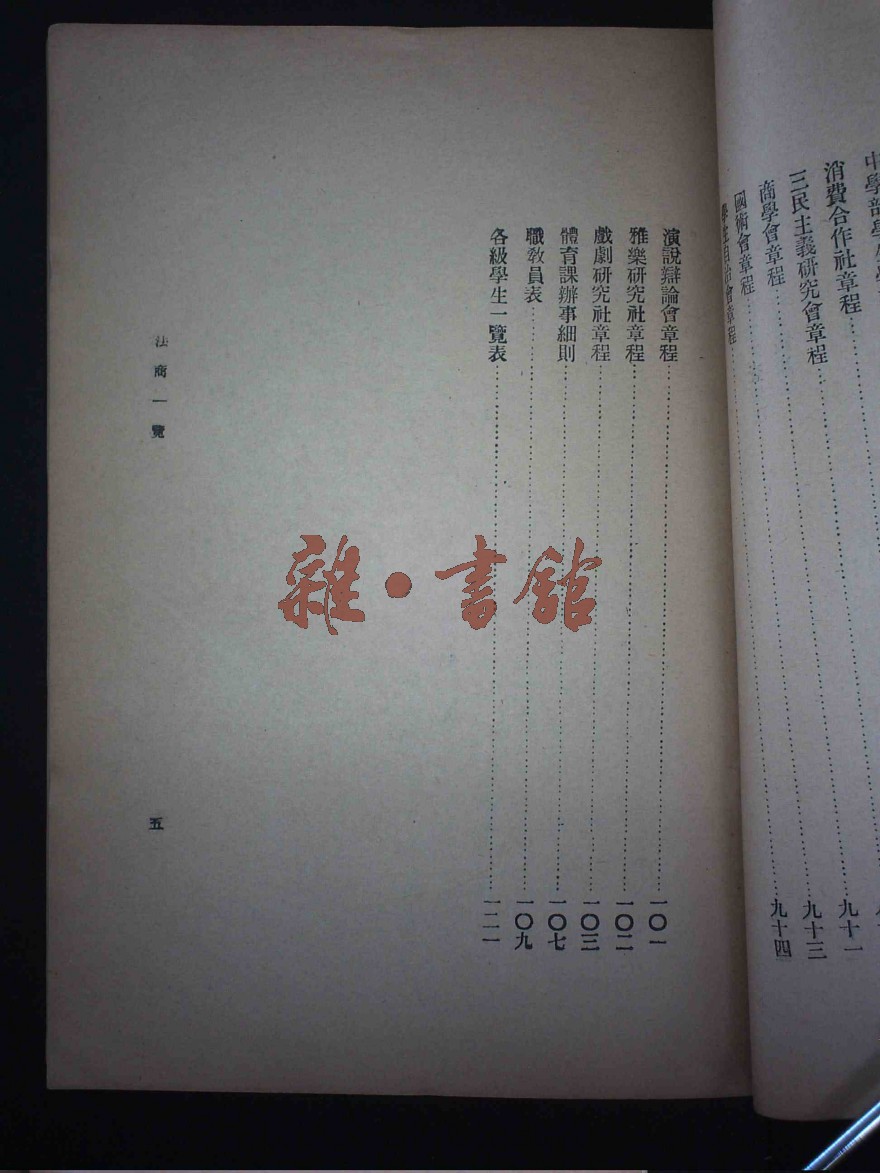 消費合作社章程
三民主義研究會章程……九十一
商學會章程……九十三
國術會章程……九十四
學生自治會章程……
演說辯論會章程……一〇一
雅樂研究社章程……一〇二
戲劇研究社章程……一〇三
體育課辦事細則……一〇七
職教員表……一〇九
各級學生一覽表……一二一
法商一覽
五
雜·書館